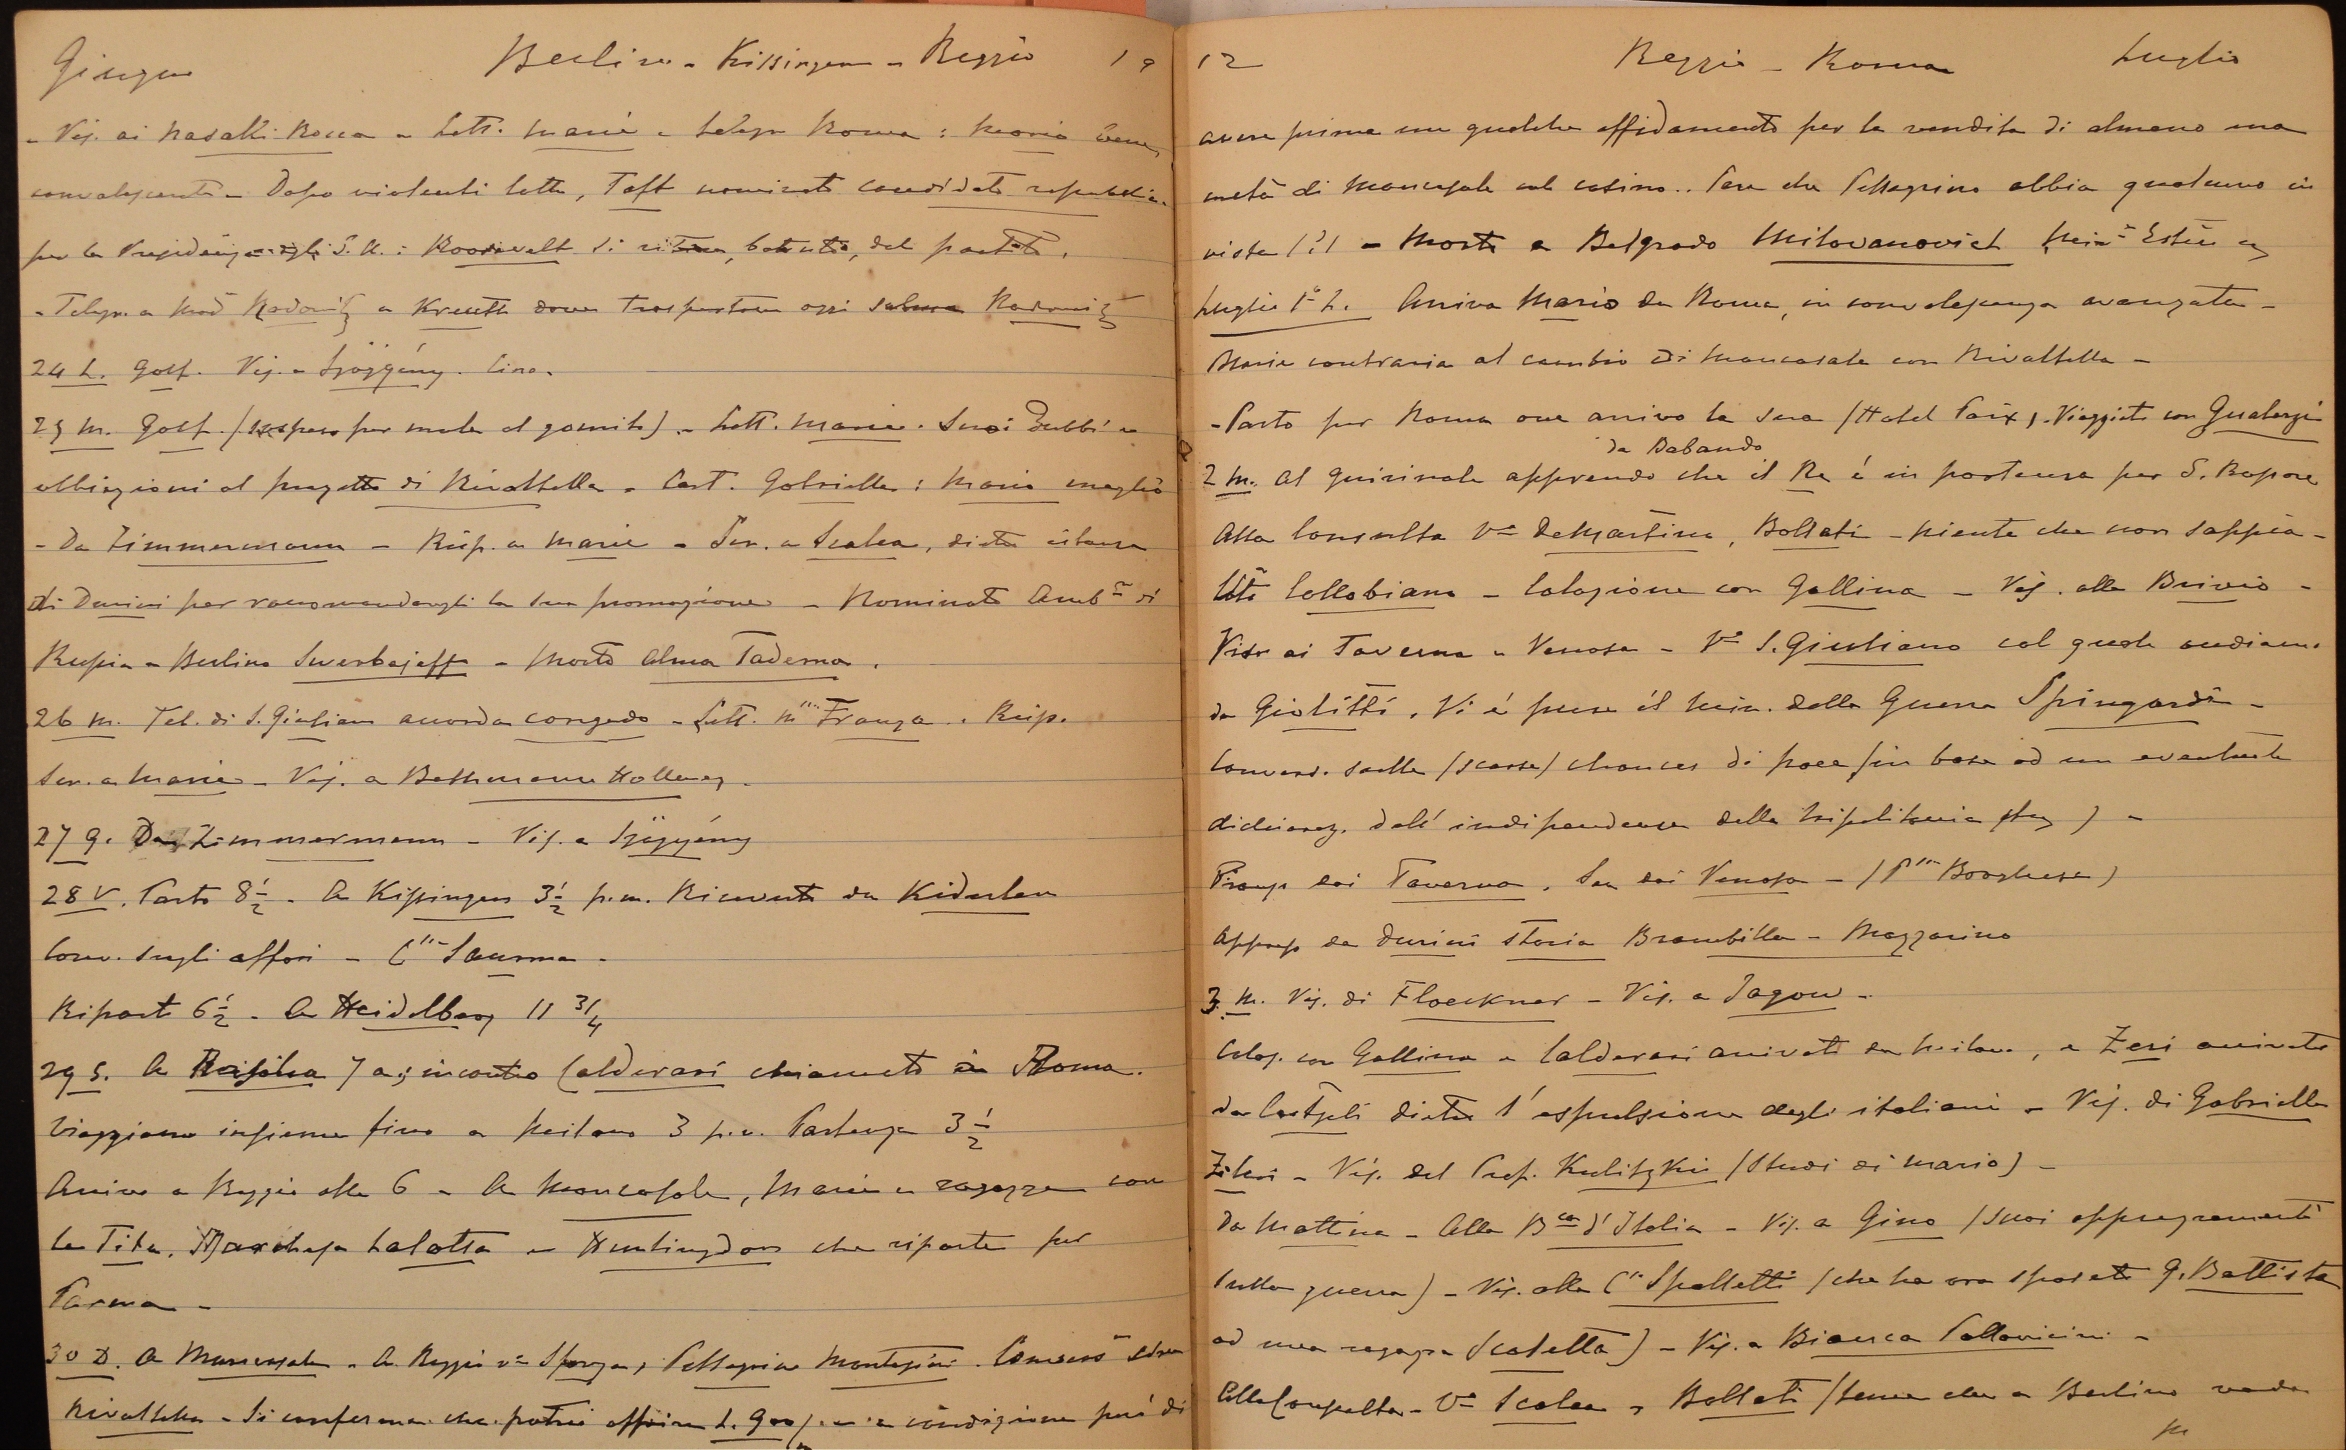 Giugno Berlino - Kissingen - Reggio 19
- Vis. ai Nasalli Rocca - Lett. Marie - Telegr. Roma : Mario bene,
convalescente - Dopo violenti lotte, Taft nominato candidato repubblic.
per la Presidenza degli S. U. : Roosevelt si ritira, battuto, dal partito.
- Telegr. a Mad Radowitz a Kreuth dove trasportano oggi salma Radowitz
24 L. Golf. Vis. a Szögyény.
25 M. Golf. (sospeso per male al gomito) - Lett. Marie. Suoi dubbi e
obbiezioni al progetto di Rivaltella - Cart. Gabriella : Mario meglio
- Da Zimmermann - Risp. a Marie - Scr. a Scalea, dietro istanza
di Durini per raccomandargli la sua promozione - Nominato Amb.re di
Russia a Berlino Swerbejeff - Morto Alma Tadema.
26 M. Tel. di S. Giuliano accorda congedo - Lett. Franza. Risp.
Scr. a Marie - Vis. a Bethmann Hollweg.
27 G. Da Zimmermann - Vis. a Szögyény
28 V. Parto 8 1/2 - A Kissingen 3 1/2 p.m. Ricevuto da Kiderlen
Conv. sugli affari - C.ssa Saurma -
Riparto 6 1/2 - A Heidelberg 11 3/4
29 S. A Basilea 7 a; incontro Calderari chiamato a Roma.
Viaggiamo insieme fino a Milano 3 p.m. Partenza 3 1/2
Arrivo a Reggio alle 6 - A Mancasale, Marie e ragazze con
la Tita. Marchesa Lalatta e Huntingdon che riparte per
Parma -
30 D. A Mancasale - A Reggio v.o Sforza, Pellegrino Montasini. Conversò
Rivaltella - Si conferma che potrei offrire a condizione però di
12 Reggio - Roma Luglio
avere prima un qualche affidamento per la vendita di almeno una
metà di Mancasale col casino.. Pare che Pellegrino abbia qualcuno in
vista (?) - Morto a Belgrado Milovanovich Min.o Esteri
Luglio 1° L. Arriva Mario da Roma, in convalescenza avanzata -
Marie contraria al cambio di Mancasale con Rivaltella -
- Parto per Roma ove arrivo la sera (Hotel Paix). Viaggiato con Gualterzi
da Dabando
2 M. Al Quirinale apprendo che il Re è in partenza per S. Rossore
Alla Consulta v.o DeMartino, Bollati - niente che non sappia -
Collobiano - Colazione con Gallina - Vis. alla Brivio -
Vis. ai Taverna e Venosa - V.o S. Giuliano col quale andiamo
da Giolitti. Vi è pure il Min. della Guerra Spingardi -
Convers. sulle (scarse) chances di pace (in base ad un eventuale
dichiaraz. dell'indipendenza della Tripolitania) -
Pranzo dai Taverna. Sera dai Venosa - (P.ssa Borghese)
Appresi da Durini storia Brambilla - Mazzarino
3 M. Vis. di Floeckner - Vis. a Jagow -
Colaz. con Gallina e Calderari arrivati da Milano, e Zeri arrivato
da Cost.poli dietro l'espulsione degli italiani - Vis. di Gabriella
Zileri - Vis. del Prof. Kulitzkii (Studi di Mario) -
Da Mattina - Alla B.ca d'Italia - Vis. a Gino (suoi apprezzamenti
sulla guerra) - Vis. alla C.ssa Spalletti (che ha ora sposato G. Battista
ad una ragazza Scatella) - Vis. a Bianca Pallavicini -
Alla Consulta - V.o Scalea, Bollati (teme che a Berlino vada